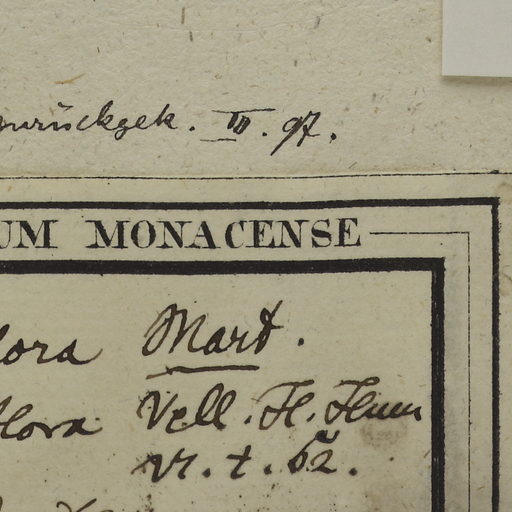 zurückgek. III. 97.
UM MONACENSE
lora Mart.
flora Vell. Fl. Flum
VI. t. 62.